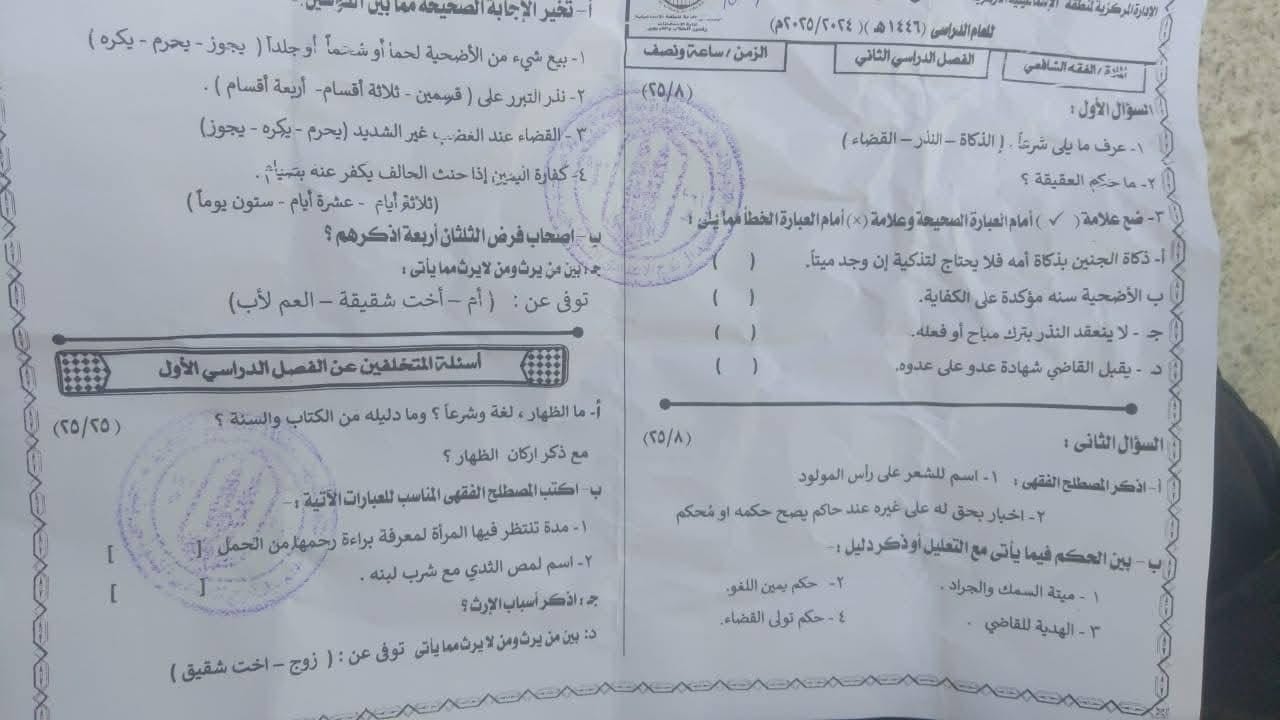 الإدارة المركزية لمنطقة الإسماعيلية
للعام الدراسى (١٤٤٦هـ )( ٢٠٢٥/٢٠٢٤م)
المادة / الفقه الشافعي
الفصل الدراسي الثاني
الزمن / ساعة ونصف
السؤال الأول :
(٢٥/٨)
١- عرف ما يلى شرعاً . ( الذكاة – النذر – القضاء )
٢- ما حكم العقيقة ؟
٣- ضع علامة ( ✓ ) أمام العبارة الصحيحة وعلامة (×) أمام العبارة الخطأ مما يلى :
أ- ذكاة الجنين بذكاة أمه فلا يحتاج لتذكية إن وجد ميتاً. ( )
ب الأضحية سنه مؤكدة على الكفاية. ( )
جـ - لا ينعقد النذر بترك مباح أو فعله. ( )
د - يقبل القاضي شهادة عدو على عدوه. ( )
السؤال الثانى :
(٢٥/٨)
أ- اذكر المصطلح الفقهى : ١- اسم للشعر على رأس المولود
٢- اخبار بحق له على غيره عند حاكم يصح حكمه او مُحكم
ب – بين الحكم فيما يأتى مع التعليل أو ذكر دليل :-
١ - ميتة السمك والجراد . ٢- حكم يمين اللغو.
٣ - الهدية للقاضي . ٤- حكم تولى القضاء.
أ- تخير الإجابة الصحيحة مما بين القوسين.
١- بيع شيء من الأضحية لحماً أو شحماً أو جلداً ( يجوز - يحرم – يكره )
٢- نذر التبرر على ( قسمين – ثلاثة أقسام- أربعة أقسام ) .
٣ - القضاء عند الغضب غير الشديد (يحرم – يكره - يجوز)
٤- كفارة اليمين إذا حنث الحالف يكفر عنه بصيام .
(ثلاثة أيام - عشرة أيام - ستون يوماً )
ب- اصحاب فرض الثلثان أربعة اذكرهم ؟
جـ : بين من يرث ومن لا يرث مما يأتى :
توفى عن : ( أم – أخت شقيقة – العم لأب)
أسئلة المتخلفين عن الفصل الدراسي الأول
أ- ما الظهار ، لغة وشرعاً ؟ وما دليله من الكتاب والسنة ؟ (٢٥/٢٥)
مع ذكر اركان الظهار ؟
ب- اكتب المصطلح الفقهى المناسب للعبارات الآتية :-
١- مدة تنتظر فيها المرأة لمعرفة براءة رحمها من الحمل [ ]
٢- اسم لمص الثدي مع شرب لبنه . [ ]
جـ : اذكر أسباب الإرث؟
د: بين من يرث ومن لا يرث مما يأتى توفى عن : ( زوج – اخت شقيق )